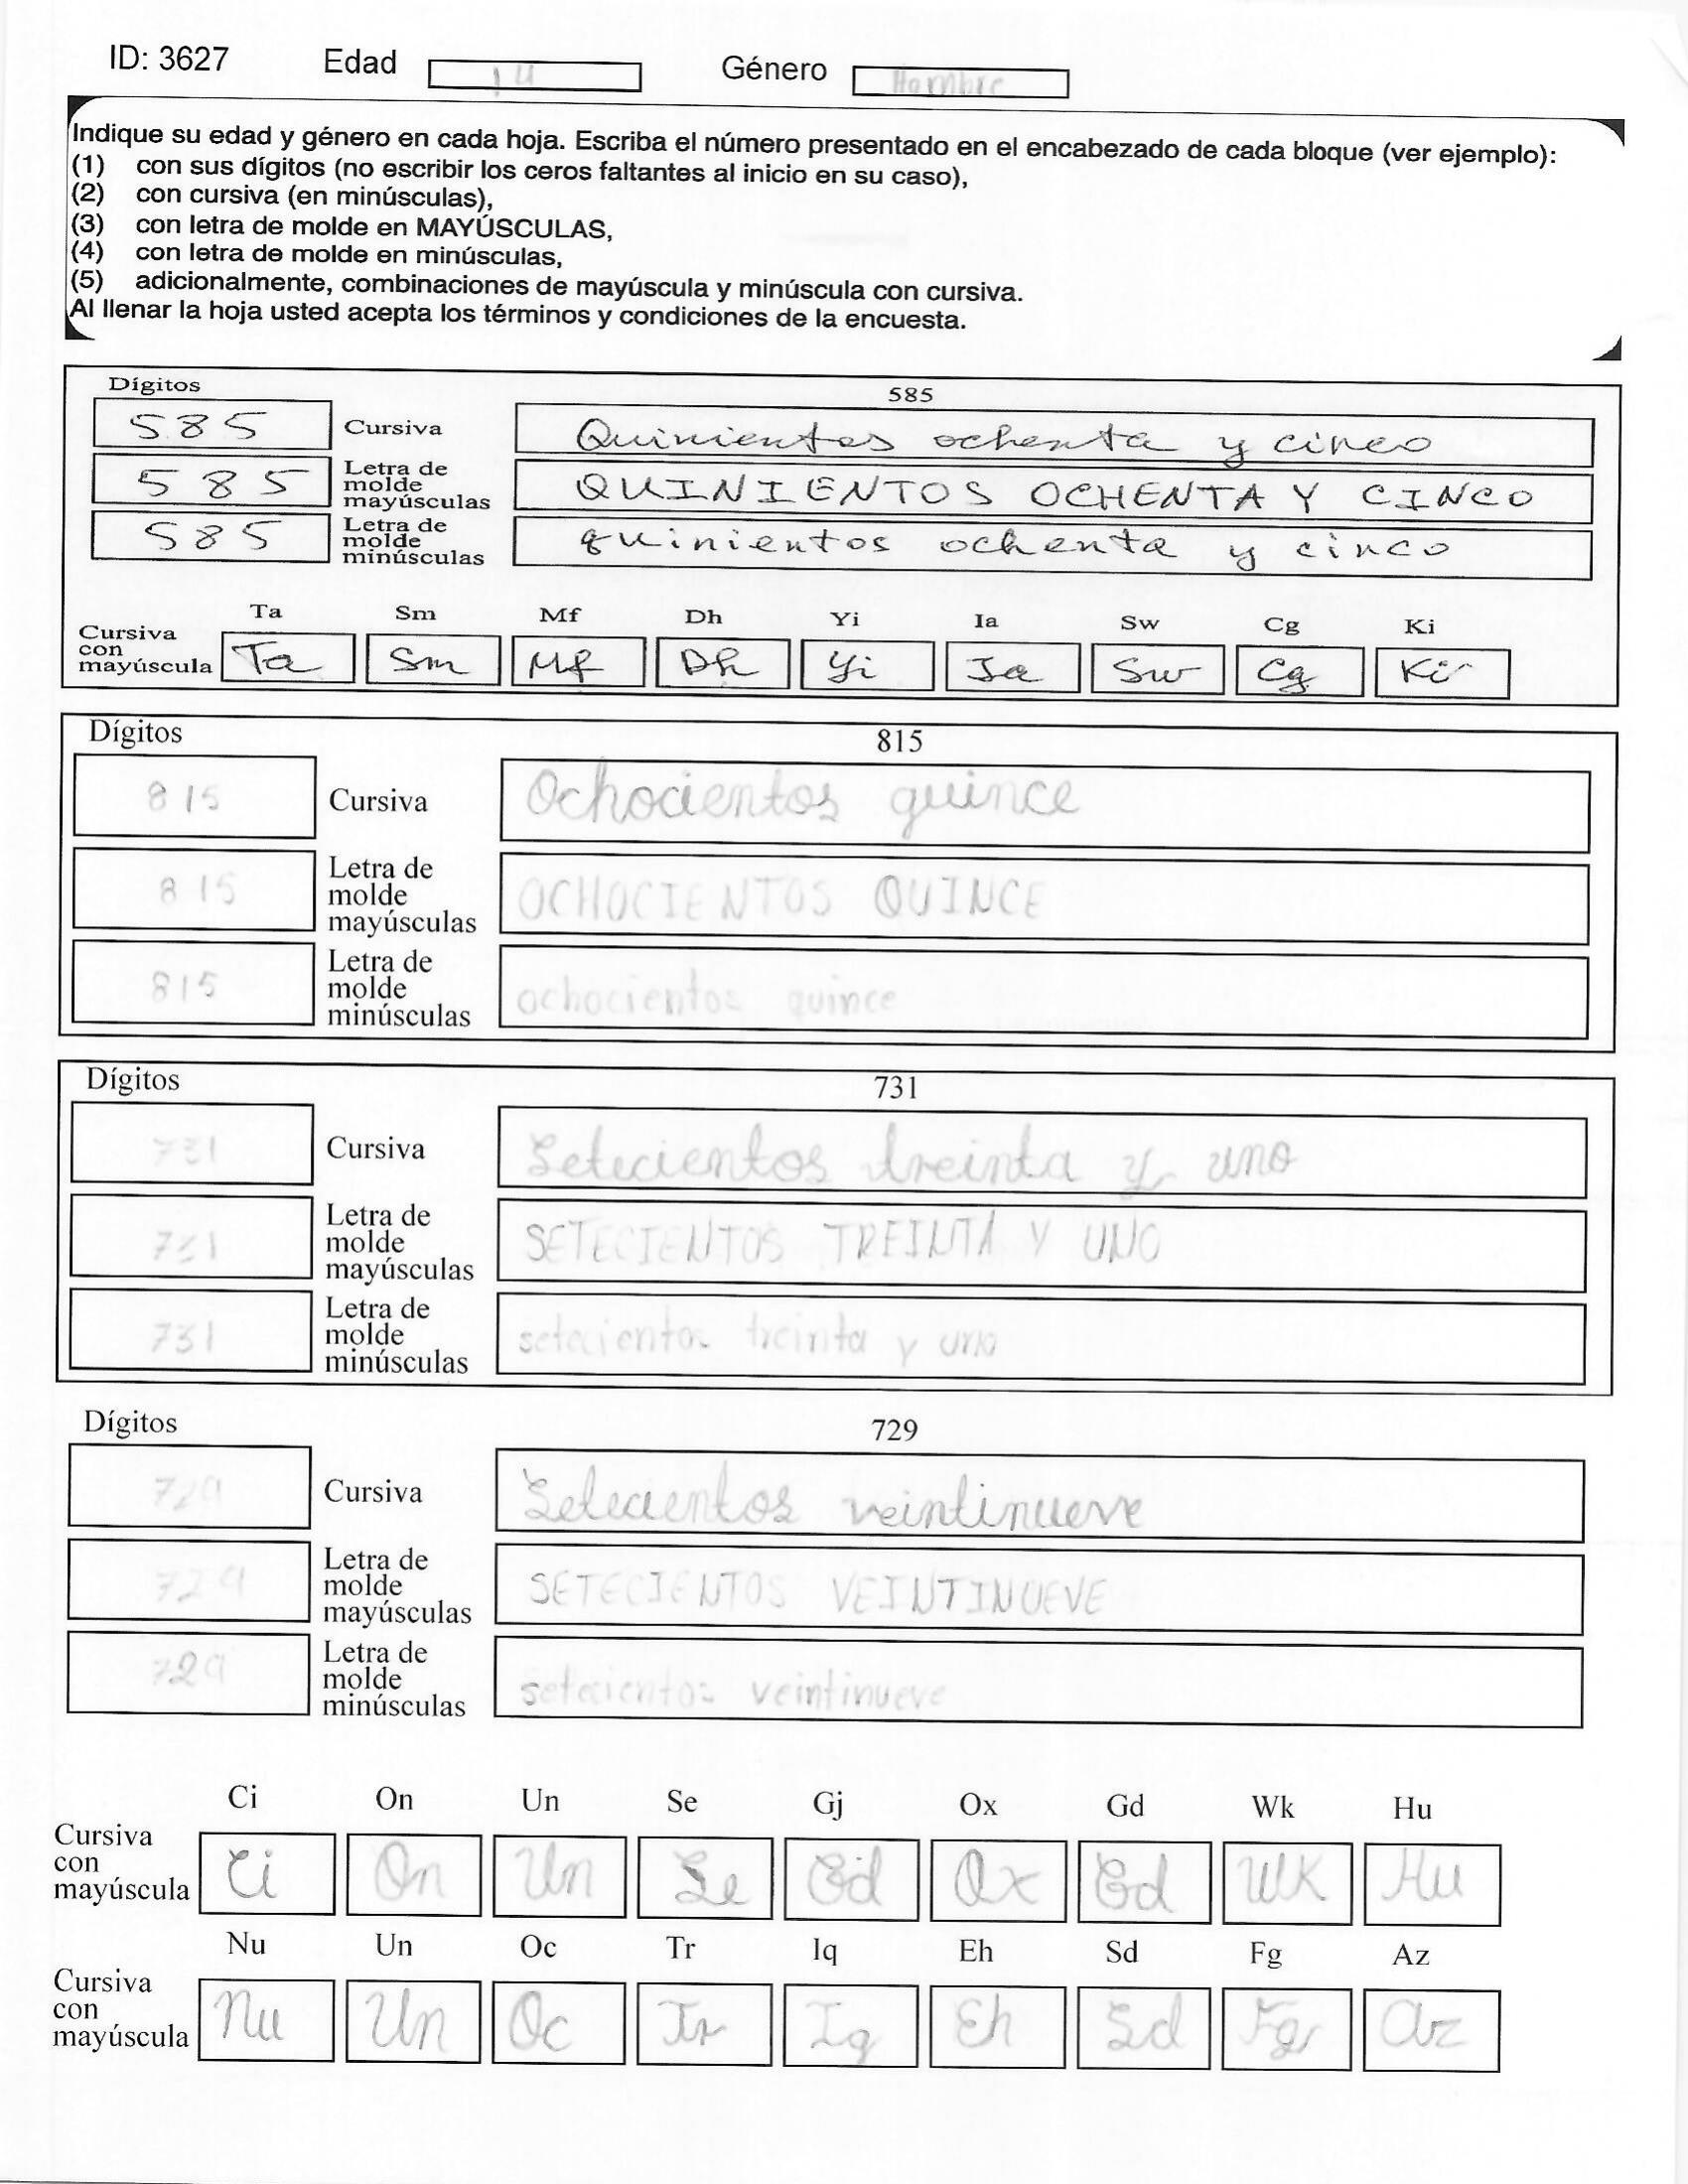 ID: 3627 Edad 14 Género Hombre
Indique su edad y género en cada hoja. Escriba el número presentado en el encabezado de cada bloque (ver ejemplo):
(1) con sus dígitos (no escribir los ceros faltantes al inicio en su caso),
(2) con cursiva (en minúsculas),
(3) con letra de molde en MAYÚSCULAS,
(4) con letra de molde en minúsculas,
(5) adicionalmente, combinaciones de mayúscula y minúscula con cursiva.
Al llenar la hoja usted acepta los términos y condiciones de la encuesta.
Dígitos 585
585 Cursiva Quinientos ochenta y cinco
585 Letra de molde mayúsculas QUINIENTOS OCHENTA Y CINCO
585 Letra de molde minúsculas quinientos ochenta y cinco
Ta Sm Mf Dh Yi Ia Sw Cg Ki
Cursiva con mayúscula Ta Sm Mf Dh Yi Ia Sw Cg Ki
Dígitos 815
815 Cursiva Ochocientos quince
815 Letra de molde mayúsculas OCHOCIENTOS QUINCE
815 Letra de molde minúsculas ochocientos quince
Dígitos 731
731 Cursiva Setecientos treinta y uno
731 Letra de molde mayúsculas SETECIENTOS TREINTA Y UNO
731 Letra de molde minúsculas setecientos treinta y uno
Dígitos 729
729 Cursiva Setecientos veintinueve
729 Letra de molde mayúsculas SETECIENTOS VEINTINUEVE
729 Letra de molde minúsculas setecientos veintinueve
Ci On Un Se Gj Ox Gd Wk Hu
Cursiva con mayúscula Ci On Un Se Gd Ox Gd Wk Hu
Nu Un Oc Tr Iq Eh Sd Fg Az
Cursiva con mayúscula Nu Un Oc Tr Iq Eh Sd Fg Az